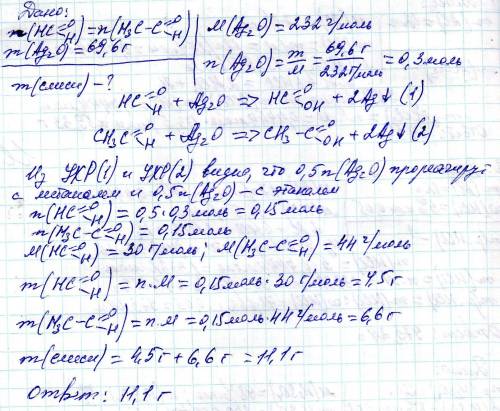 Дано:
n(HC=O H) = n(H3C-C=O H)
m(Ag2O) = 69,6г
m(смеси) - ?
M(Ag2O) = 232 г/моль
n(Ag2O) = m/M = 69,6 г/232 г/моль = 0,3 моль
HC=O H + Ag2O => HC=O OH + 2Ag↓ (1)
CH3C=O H + Ag2O => CH3-C=O OH + 2Ag↓ (2)
Из УХР(1) и УХР(2) видно, что 0,5n(Ag2O) прореагирует
с метаналем и 0,5n(Ag2O) - с этаналем
n(HC=O H) = 0,5·0,3 моль = 0,15 моль
n(H3C-C=O H) = 0,15 моль
M(HC=O H) = 30 г/моль; M(H3C-C=O H) = 44 г/моль
m(HC=O H) = n·M = 0,15 моль·30 г/моль = 4,5 г
m(H3C-C=O H) = n·M = 0,15 моль·44 г/моль = 6,6 г
m(смеси) = 4,5 г + 6,6 г = 11,1 г
Ответ: 11,1 г